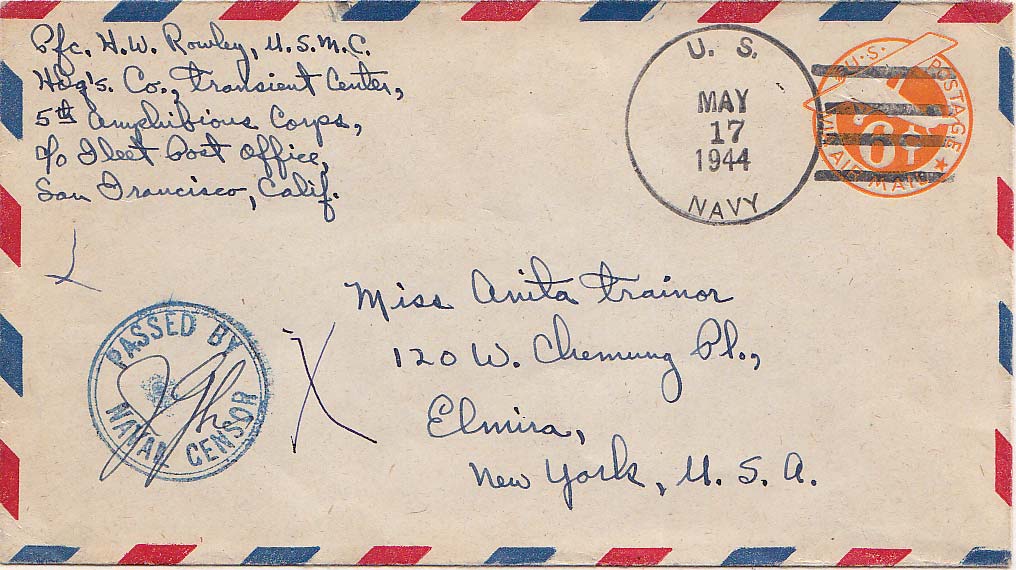 Pfc. H.W. Rowley, U.S.M.C.
Hdq's. Co., Transient Center,
5th Amphibious Corps,
c/o Fleet Post Office,
San Francisco, Calif.
U. S.
MAY
17
1944
NAVY
U.S. POSTAGE
6¢
VIA AIR MAIL
Miss Anita Trainor
120 W. Chemung Pl.,
Elmira,
New York, U. S. A.
PASSED BY
NAVAL CENSOR